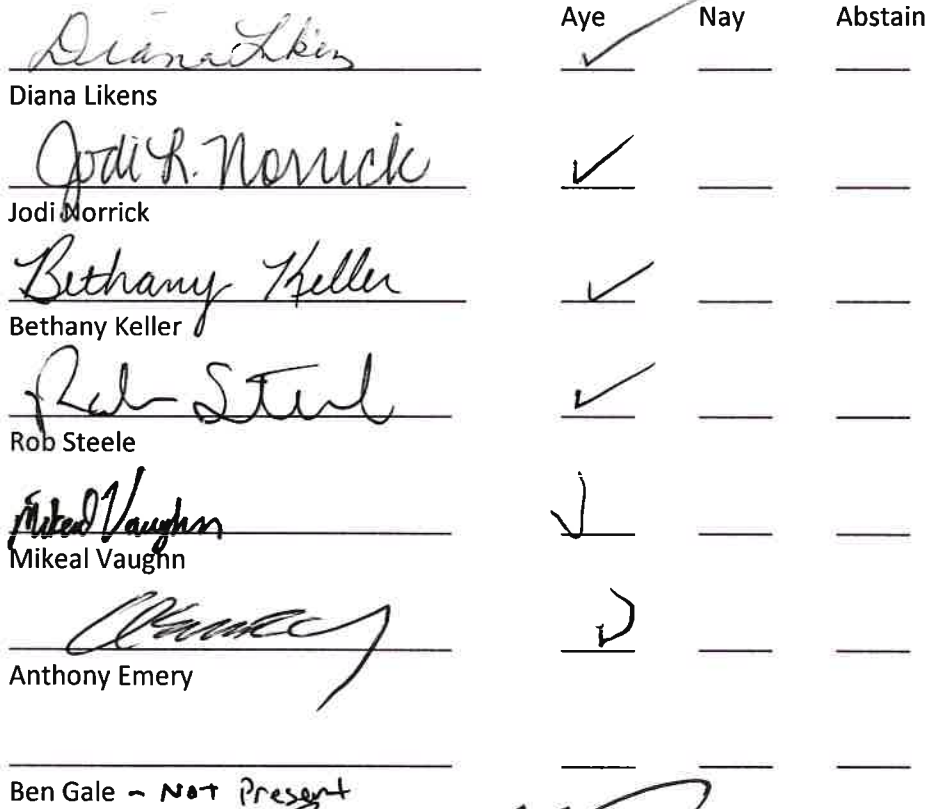 Aye Nay Abstain
Diana Likens
Diana Likens
Jodi L. Norrick
Jodi Norrick
Bethany Keller
Bethany Keller
Rob Steele
Rob Steele
Mikeal Vaughn
Mikeal Vaughn
Anthony Emery
Ben Gale - Not Present